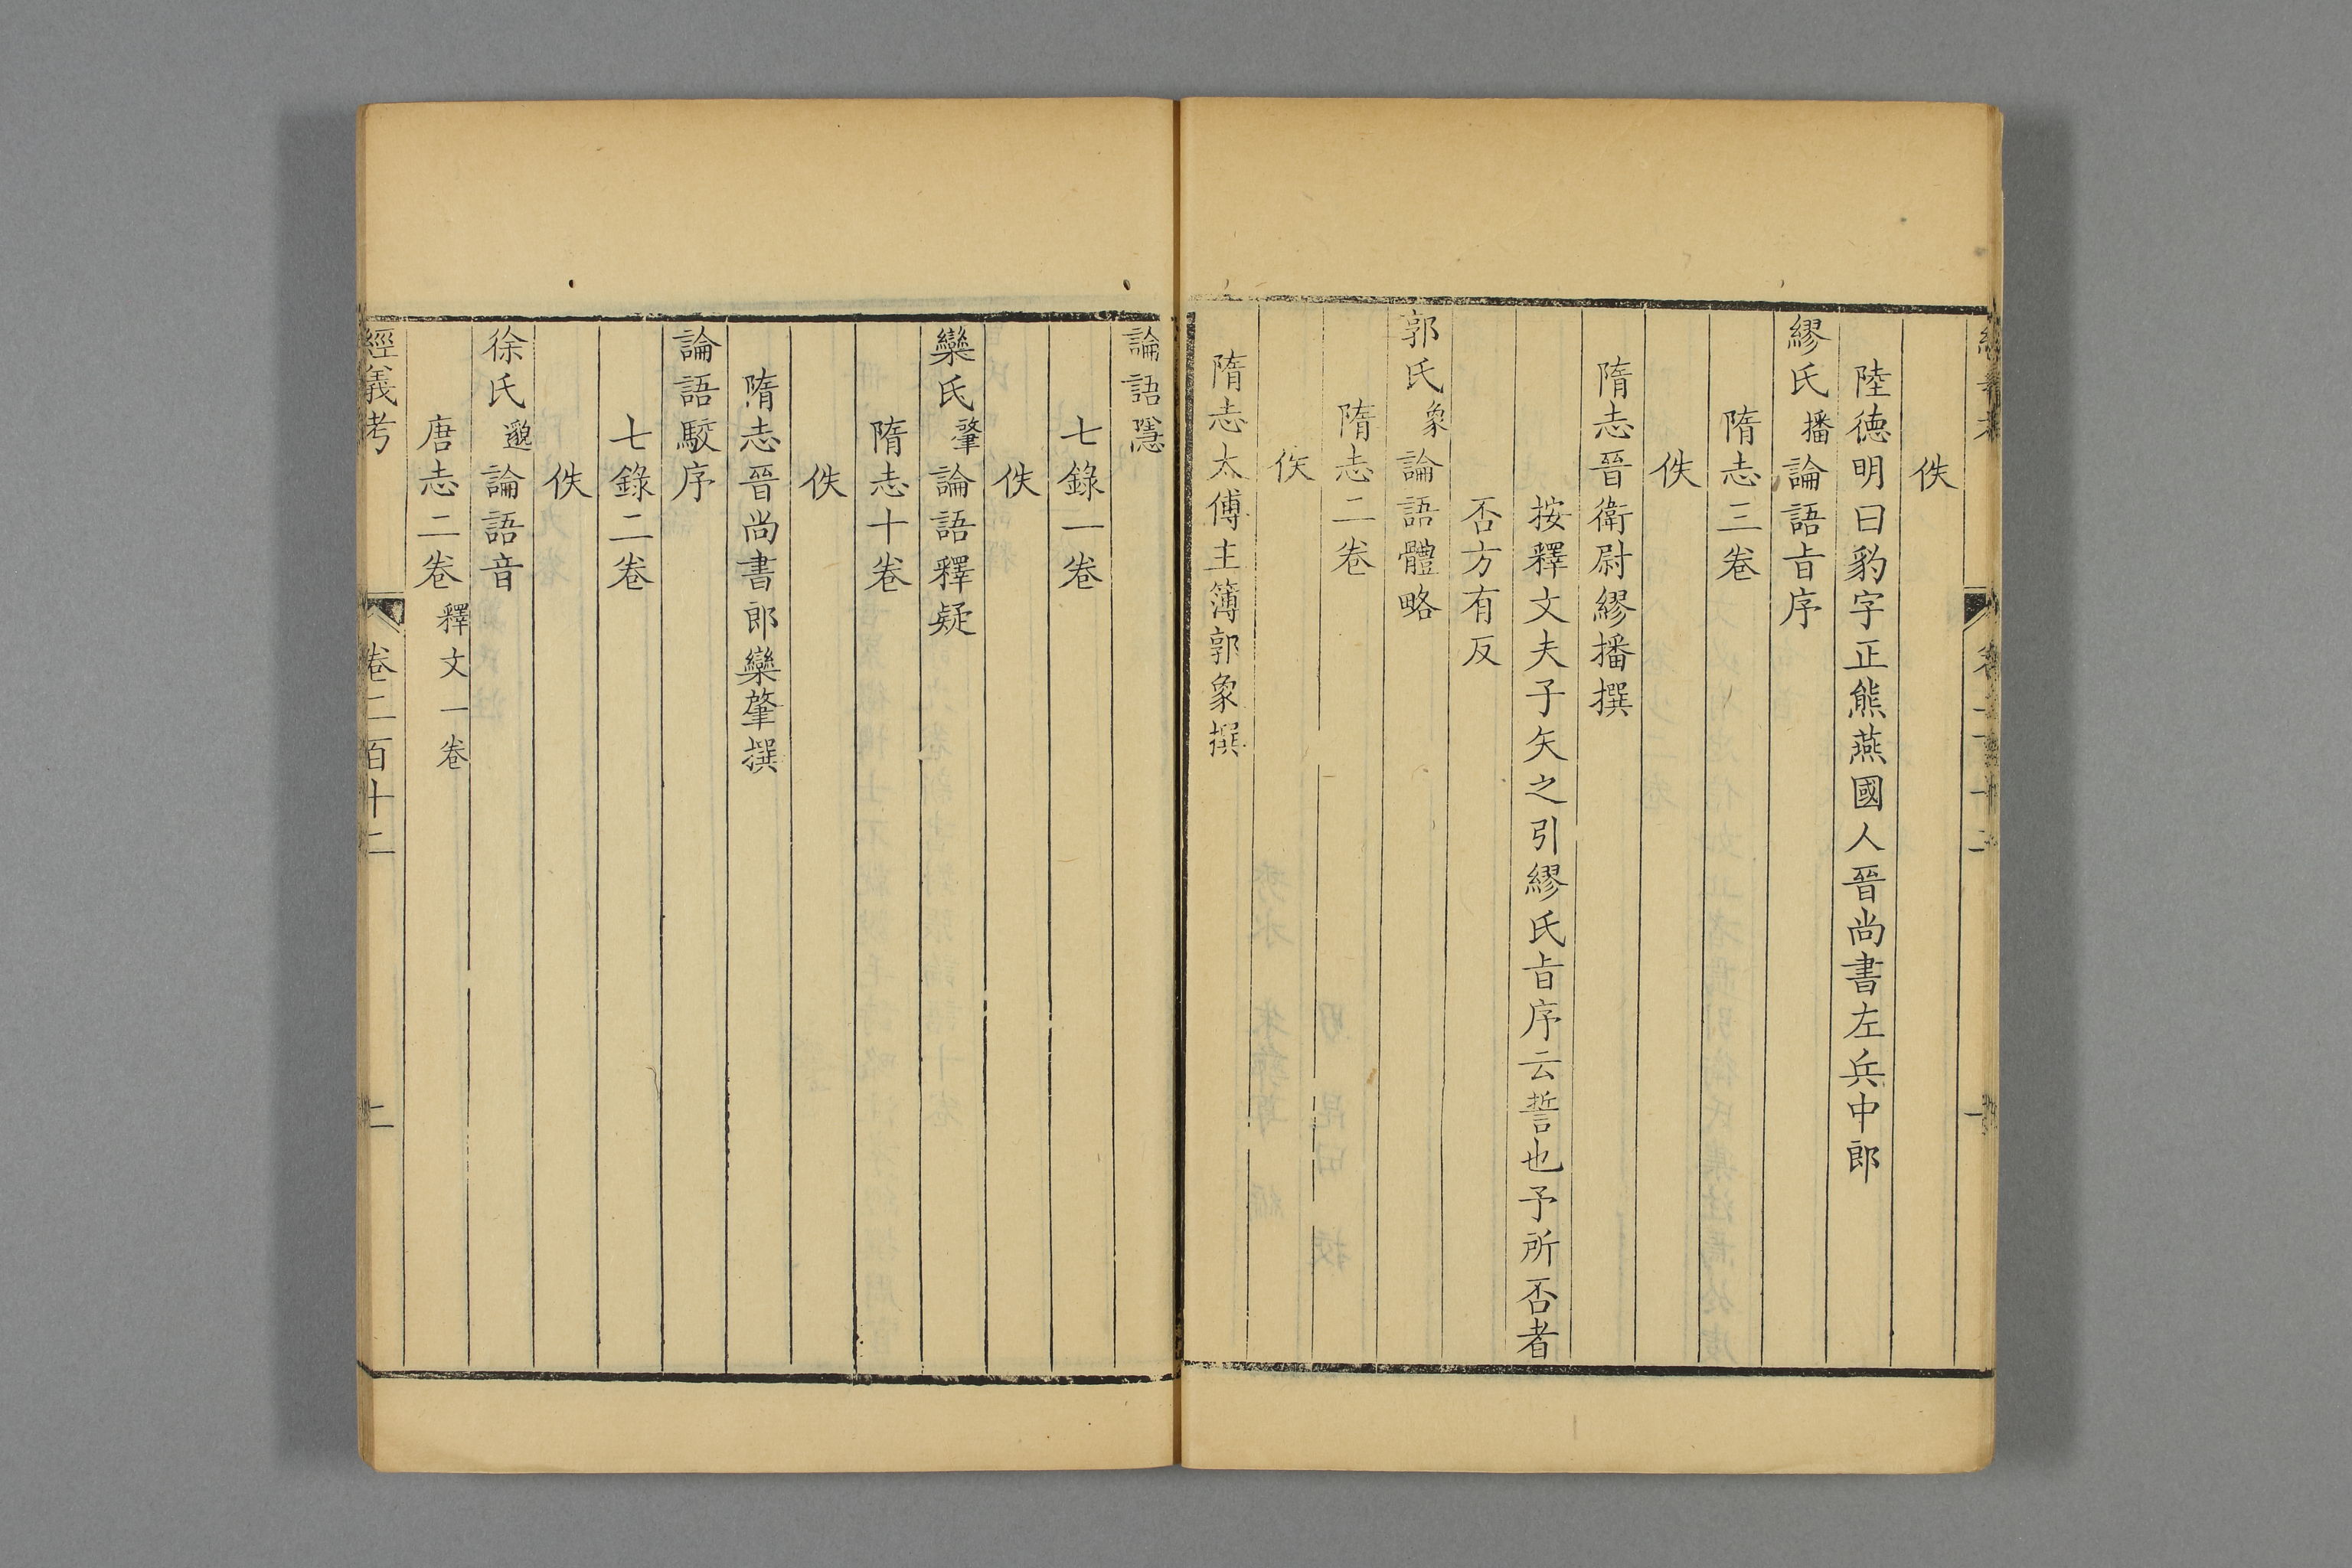 佚
陸德明曰豹字正熊燕國人晉尚書左兵中郎
繆氏播論語旨序
隋志三卷
佚
隋志晉衛尉繆播撰
按釋文夫子矢之引繆氏旨序云誓也予所否者
否方有反
郭氏象論語體略
隋志二卷
佚
隋志太傅主簿郭象撰
論語隱
七錄一卷
佚
欒氏肇論語釋疑
隋志十卷
佚
隋志晉尚書郎欒肇撰
論語駮序
七錄二卷
佚
徐氏邈論語音
唐志二卷釋文一卷
經義考 卷二百十二 二